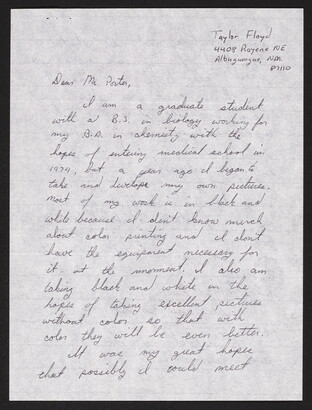 Taylor Floyd
4409 Royene NE
Albuquerque, N.M.
87110
Dear Mr. Porter,
I am a graduate student
with a B.S. in biology working for
my B.A. in chemistry with the
hopes of entering medical school in
1979, but a year ago I began to
take and develope my own pictures.
Most of my work is in black and
white because I don't know much
about color printing and I don't
have the equipment necessary for
it at the moment. I also am
taking black and white in the
hopes of taking excellent pictures
without color so that with
color they will be even better.
It was my great hope
that possibly I could meet